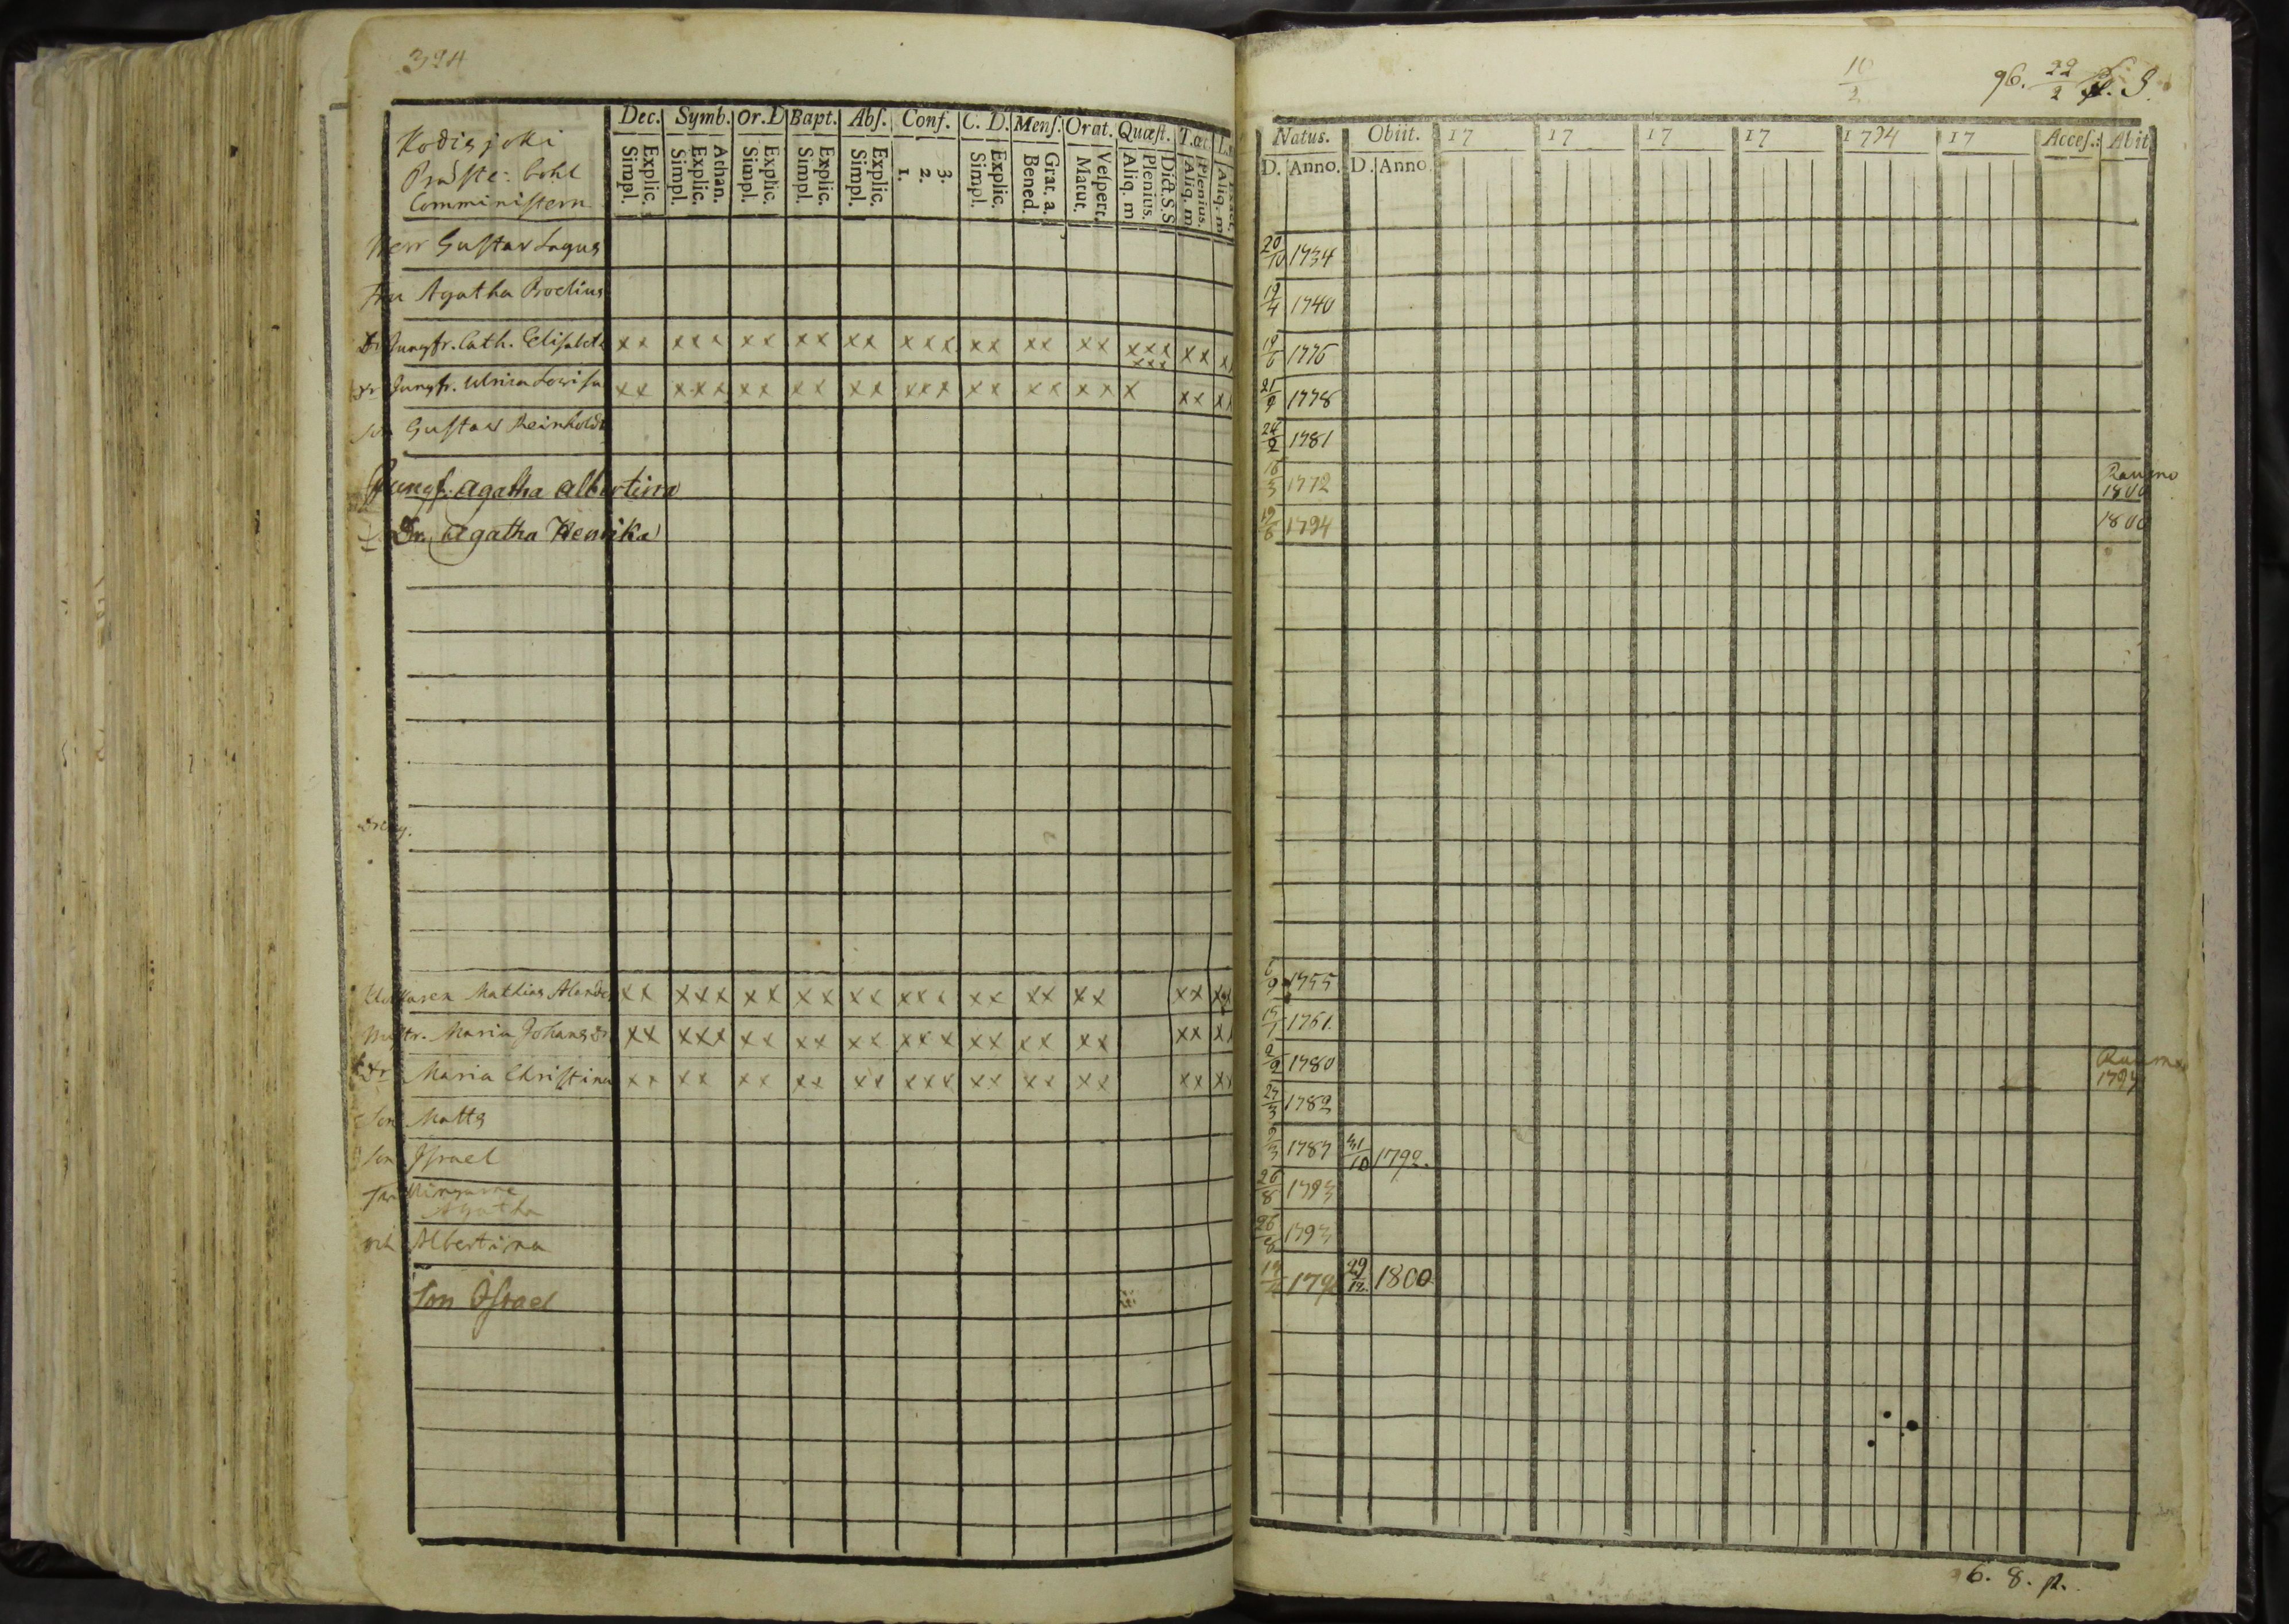 394
Kodisjoki
Präste: bohl
Comministern
Dec. Symb. Or. D Bapt. Abs. Conf. C. D. Mens. Orat. Quæst. T.œc
Explic. Simpl. Athan. Explic. Simpl. Explic. Simpl. Explic. Simpl. Explic. Simpl. 3. 2. 1. Explic. Simpl. Grat. a. Bened. Vespert. Matut. Dict. S.S Plenius. Aliq. m Plenius. Aliq. m Aliq. m
Herr Gustav Lagus
Fru Agatha Procelius
Dr Jungfr. Cath. Elisabeth xx xxx xx xx xx xxx xx xx xx xxx xxx xx x
Dr Jungfr. Ulrica Lovisa xx xxx xx xx xx xxx xx xx xx x xx xx
Gustaw Reinhold
Jungf. Agatha Albertina
Dr. Agatha Henrika
dreng.
Klockaren Mathias Alander xx xxx xx xx xx xxx xx xx xx xx xx
Maria Johansdr xx xxx xx xx xx xxx xx xx xx xx xx
Dr Maria Christina xx xx xx xx xx xxx xx xx xx xx xx
Son Matts
Son Israel
Agatha
och Albertina
Son Israel
96. 22/2 S.
Natus. Obiit. 17 17 17 17 1794 17 Acces.: Abit
D. Anno. D. Anno.
20/10 1734
19/4 1740
19/6 1776
21/9 1778
1781
16/3 1772 Raumo 1800
19/6 1794 1800
6/9 1755
15/1 1761.
2/9 1780 Raumo 1797
27/3 1782
1787 31/10 1792.
26/8 1793
26/8 1793
29/12. 1800
6. 8. p.